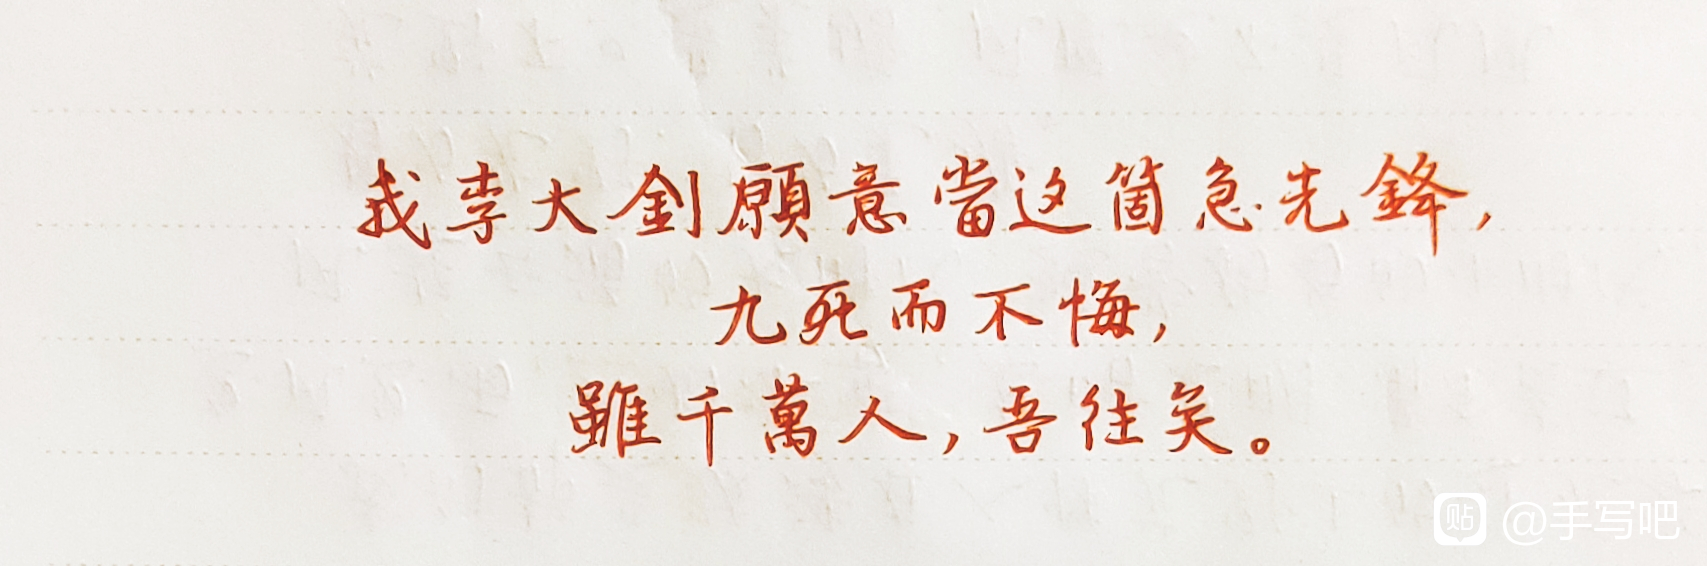 我李大釗願意當这箇急先鋒,
九死而不悔,
雖千萬人,吾往矣。
贴 @手写吧